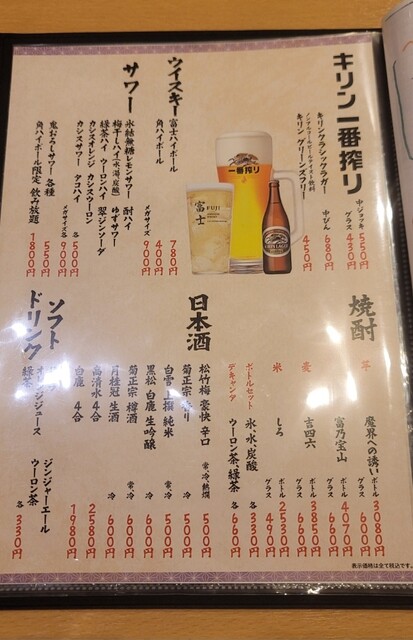 キリン一番搾り
中・ジョッキ 550円
グラス 430円
キリンクラシックラガー
中びん 680円
ノンアルコールビールテイスト飲料
キリン グリーンズフリー 450円
一番搾り
富士
FUJI
ウイスキー
富士ハイボール 780円
角ハイボール 400円
メガサイズ 900円
サワー
氷結無糖レモンサワー 酎ハイ
梅干しハイ(水、湯、炭酸) ゆずサワー
緑茶ハイ ウーロンハイ 翠ジンソーダ
カシスオレンジ カシスウーロン
カシスサワー タコハイ
各 500円
メガサイズ各 900円
鬼おろしサワー 各種 550円
角ハイボール限定 飲み放題 1800円
焼酎
芋
魔界への誘い ボトル 3080円
グラス 660円
富乃宝山 ボトル 4070円
グラス 660円
麦
吉四六 ボトル 3850円
グラス 660円
米
しろ ボトル 2530円
グラス 490円
ボトルセット 氷、水、炭酸 各 330円
デキャンタ ウーロン茶、緑茶 各 660円
日本酒
松竹梅 豪快 辛口 常、冷、熱燗 500円
菊正宗 香り 冷 500円
白雪 上撰 純米 常、冷 600円
黒松 白鹿 生吟醸 冷 600円
菊正宗 樽酒 常、冷 600円
月桂冠 生酒 冷 600円
高清水 4合 2580円
白鹿 4合 1980円
ソフトドリンク
オレンジジュース ジンジャーエール
緑茶 ウーロン茶
各 330円
表示価格は全て税込です。